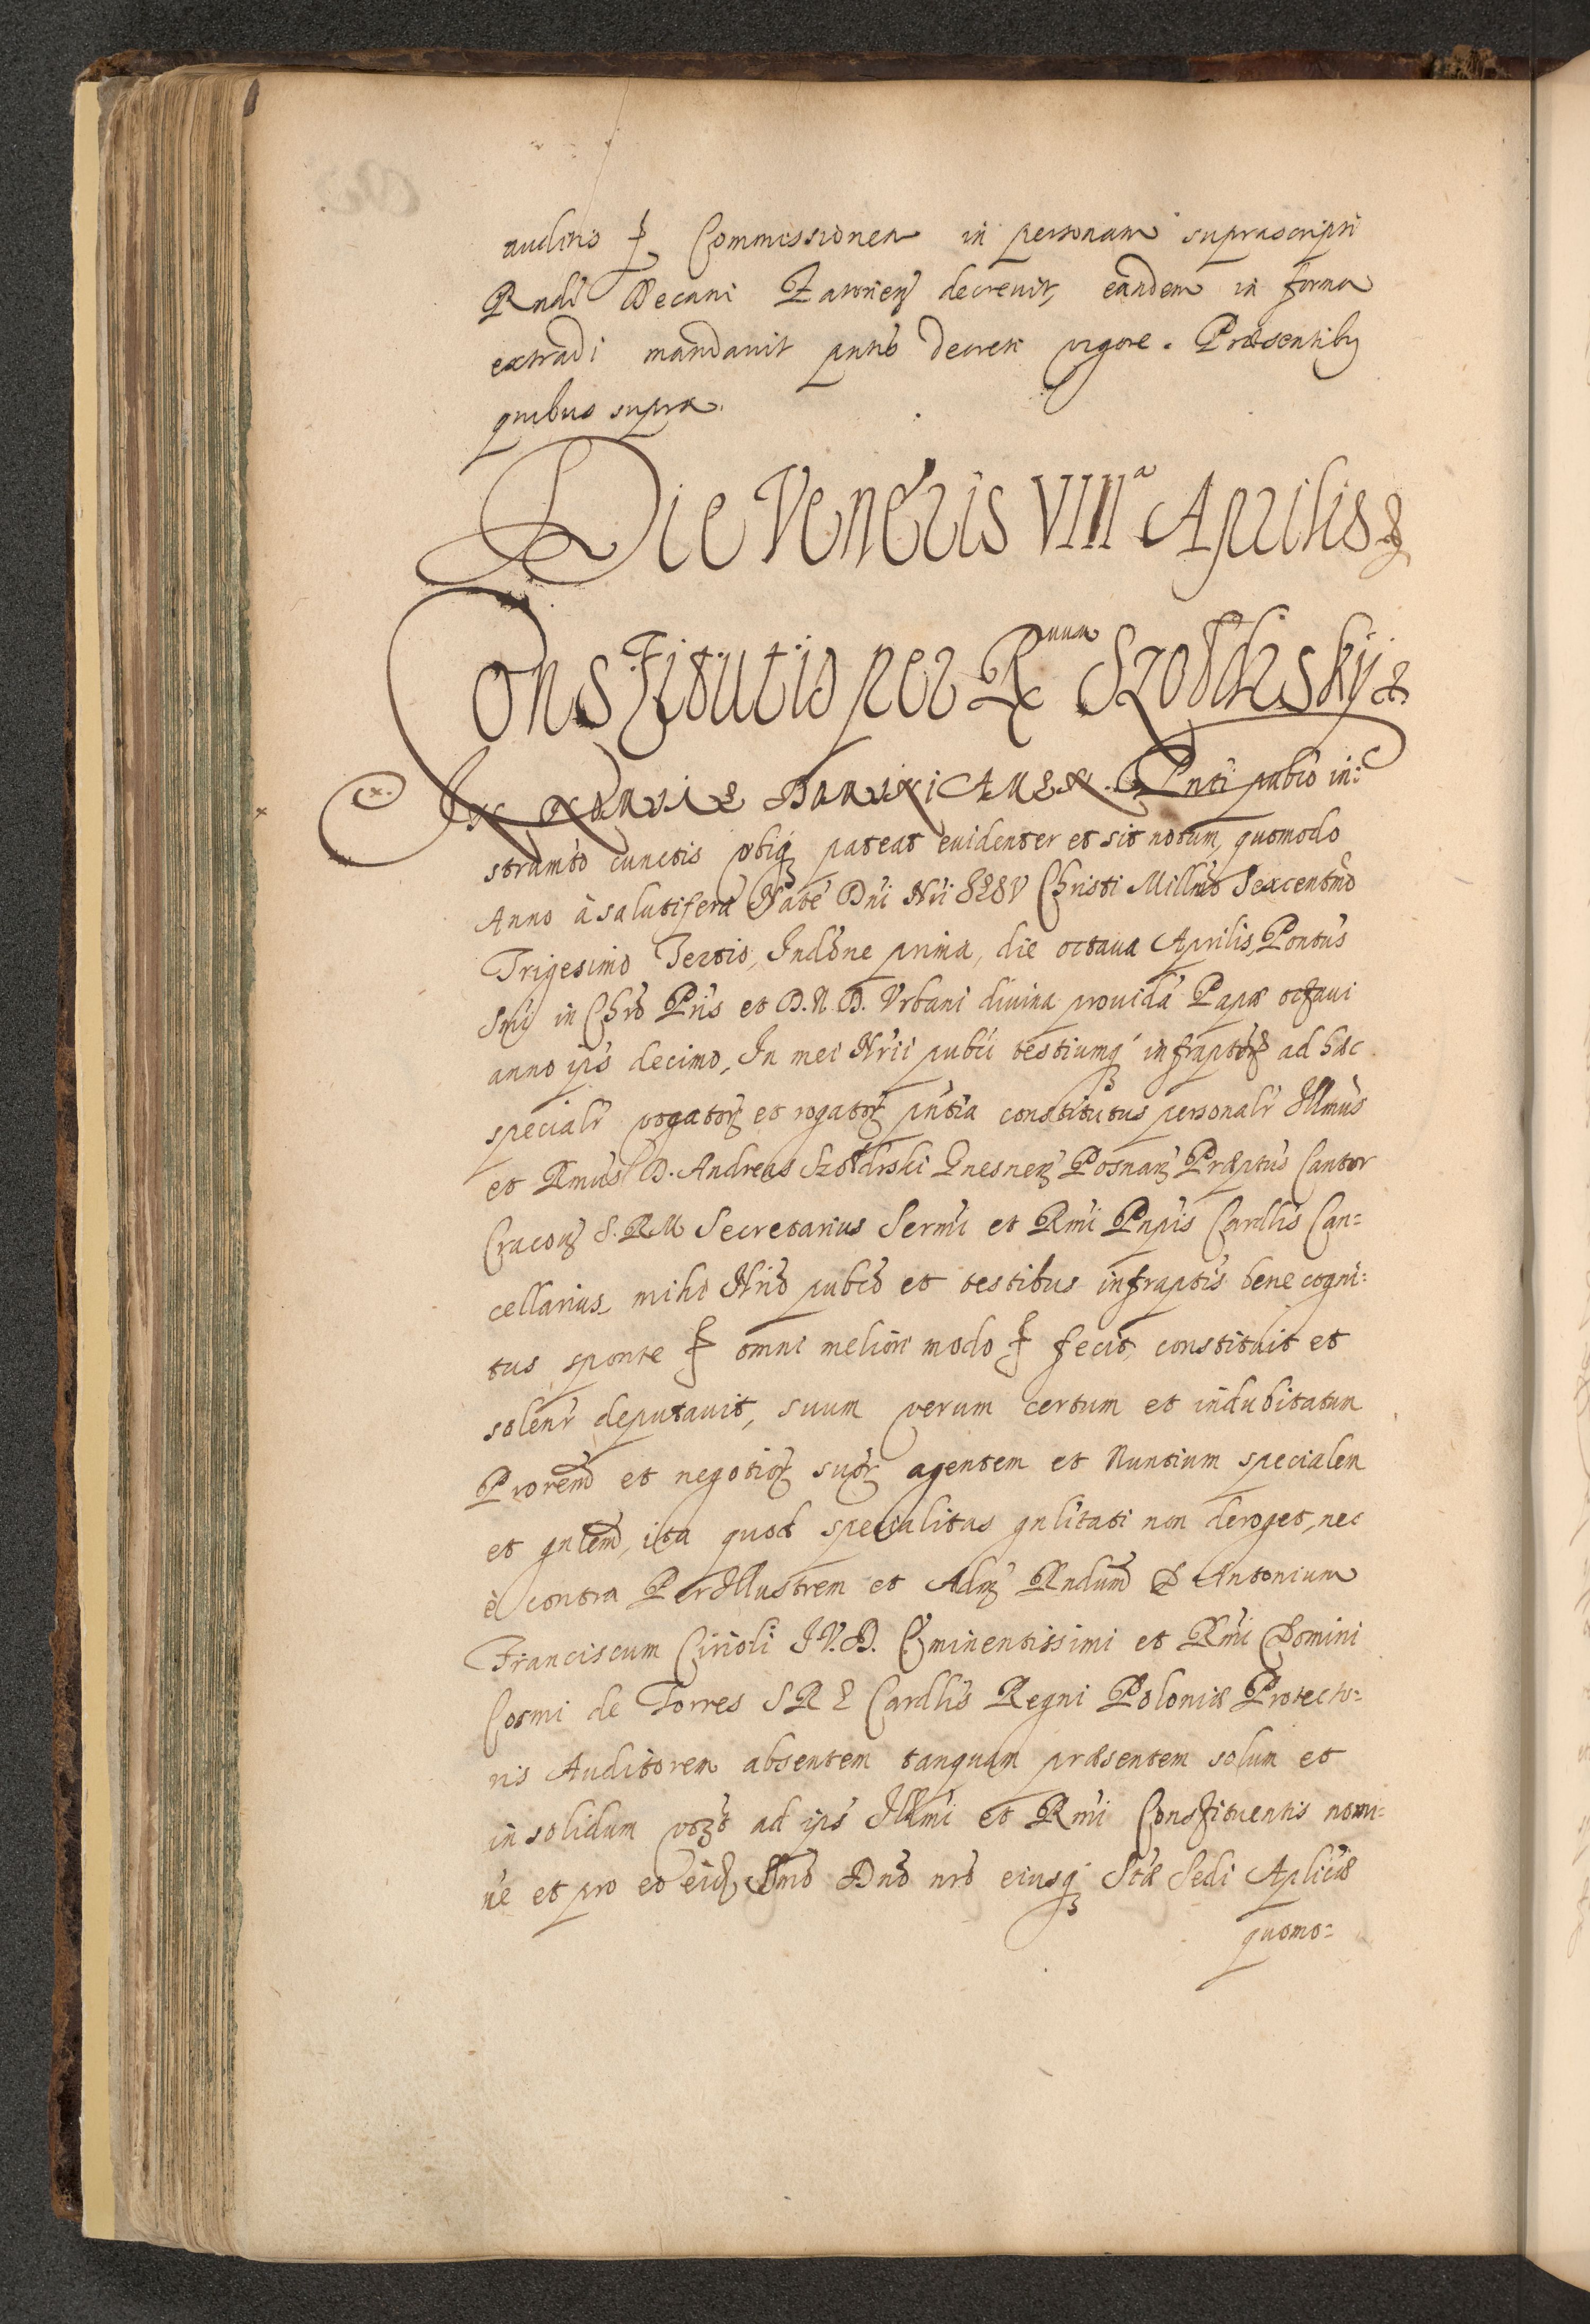 auditis Commissionem in personam suprascripti
Rndi Decani Zatorien decrevit, eandem in forma
extradi mandavit pntis decreti vigore. Præsentibq
quibus supra.
Die Veneris VIIIa Aprilis &
Constitutio per Rmum Szołdrski &
In Nomine Domini Amen. Pnti pubco in:
strumto cunctis vbiq pateat euidenter et sit notum, quomodo
Anno à salutifera Nate Dni Nri IESV Christi Millmo Sexcentmo
Trigesimo Tertio, Indone prima, die octaua Aprilis, Pontus
Smi in Chro Pris et D. N. D. Vrbani diuina prouida Papæ octaui
anno ips decimo, In mei Nrii pubci testiumq infraptor ad hæc
specialr vogator et rogator pntia constitutus personalr Illmus
et Rmus D. Andreas Szołdrski Gnesnen Posnan Præptus Cantor
Cracov S. R M Secretarius Sermi et Rmi Pnpis Cardlis Can=
cellarius mihi Nrio pubco et testibus infraptis bene cogni=
tus sponte omni meliori modo fecit, constituit et
solenr deputauit, suum verum certum et indubitatum
Prorem et negotior suor agentem et Nuntium specialem
et gnlem, ita quod specialitas gnlitati non deroget, nec
è contra PerIllustrem et Adm Rndum D Antonium
Franciscum Cirioli I V. D. Eminentissimi et Rmi Domini
Cosmi de Torres S R E Cardlis Regni Poloniæ Protecto=
ris Auditorem absentem tanquam præsentem solum et
in solidum ad ips Illmi et Rmi Constituentis nomi=
ne et pro eo eid Smo Dno nro eiusq Stæ Sedi Aplicæ
quomo=